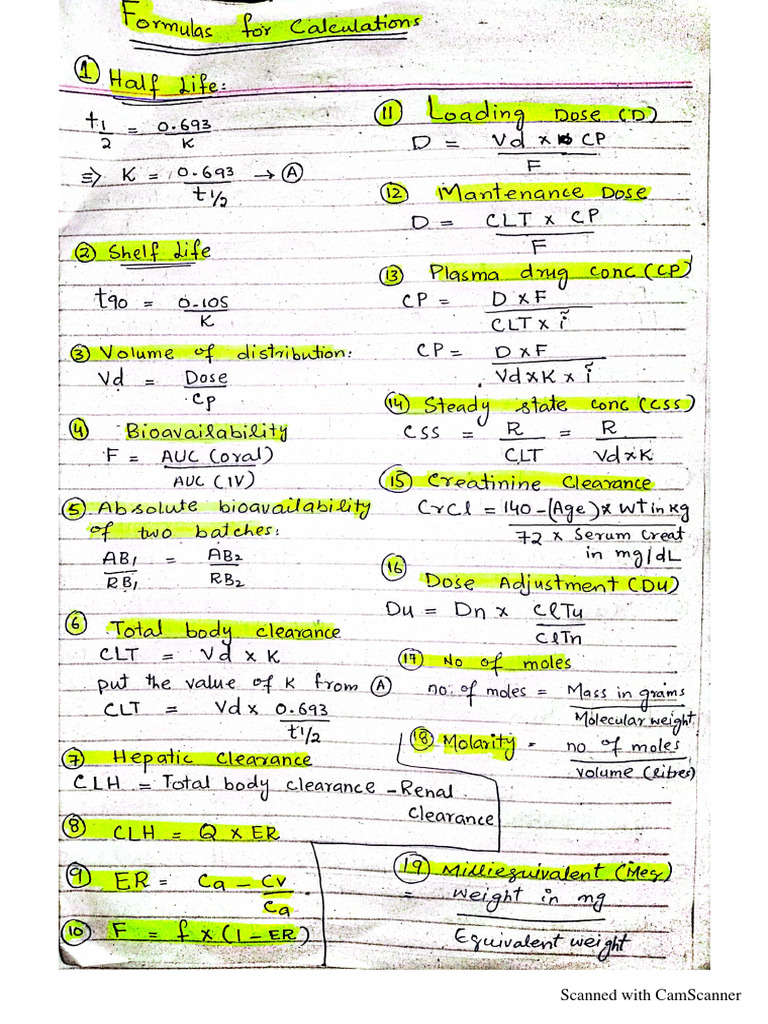 Formulas for Calculations
① Half Life:
t1/2 = 0.693/K
⇒ K = 0.693/t1/2 → Ⓐ
② Shelf Life
t90 = 0.105/K
③ Volume of distribution:
Vd = Dose/Cp
④ Bioavailability
F = AUC (oral)/AUC (IV)
⑤ Absolute bioavailability
of two batches:
AB1/RB1 = AB2/RB2
⑥ Total body clearance
CLT = Vd x K
put the value of K from Ⓐ
CLT = Vd x 0.693/t1/2
⑦ Hepatic Clearance
CLH = Total body clearance - Renal
clearance
⑧ CLH = Q x ER
⑨ ER = Ca - Cv/Ca
⑩ F = f x (1 - ER)
⑪ Loading Dose (D)
D = Vd x CP/F
⑫ Mantenance Dose
D = CLT x CP/F
⑬ Plasma drug conc (CP)
CP = D x F/CLT x ĩ
CP = D x F/Vd x K x ĩ
⑭ Steady state conc (CSS)
CSS = R/CLT = R/Vd x K
⑮ Creatinine Clearance
CrCl = 140 - (Age) x wt in kg/72 x Serum Creat
in mg/dL
⑯ Dose Adjustment (Du)
Du = Dn x ClTu/ClTn
⑰ No of moles
no. of moles = Mass in grams/Molecular weight
⑱ Molarity = no. of moles/volume (litres)
⑲ Milliequivalent (Meq)
= Weight in mg/Equivalent weight
Scanned with CamScanner